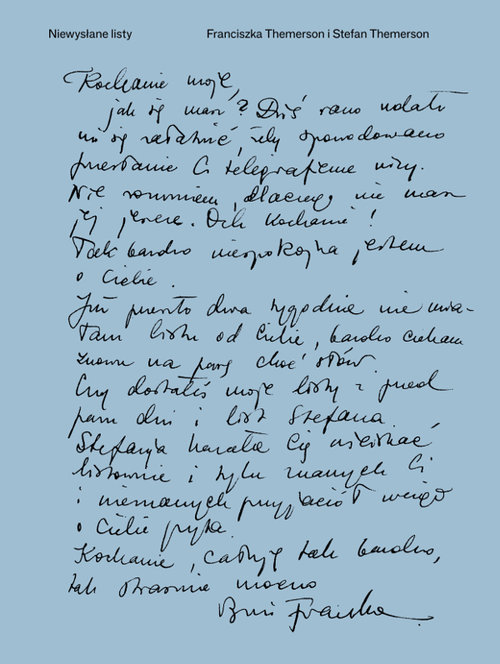 Niewysłane listy
Franciszka Themerson i Stefan Themerson
Kochanie moje,
jak się masz? Dziś rano udało
mi się załatwić, żeby spowodowano
przesłanie Ci telegraficzne wizy.
Nie rozumiem, dlaczego nie masz
jej jeszcze. Och kochanie!
Tak bardzo niespokojna jestem
o Ciebie.
Już prawie dwa tygodnie nie mia-
łam listu od Ciebie, bardzo czekam
znowu na parę choć słów.
Czy dostałeś moje listy z przed
paru dni i list Stefana.
Stefania kazała Cię uściskać
listownie i tylu znanych Ci
i nieznanych przyjaciół wciąż
o Ciebie pyta.
Kochanie, całuję tak bardzo,
tak strasznie mocno
Franciszka